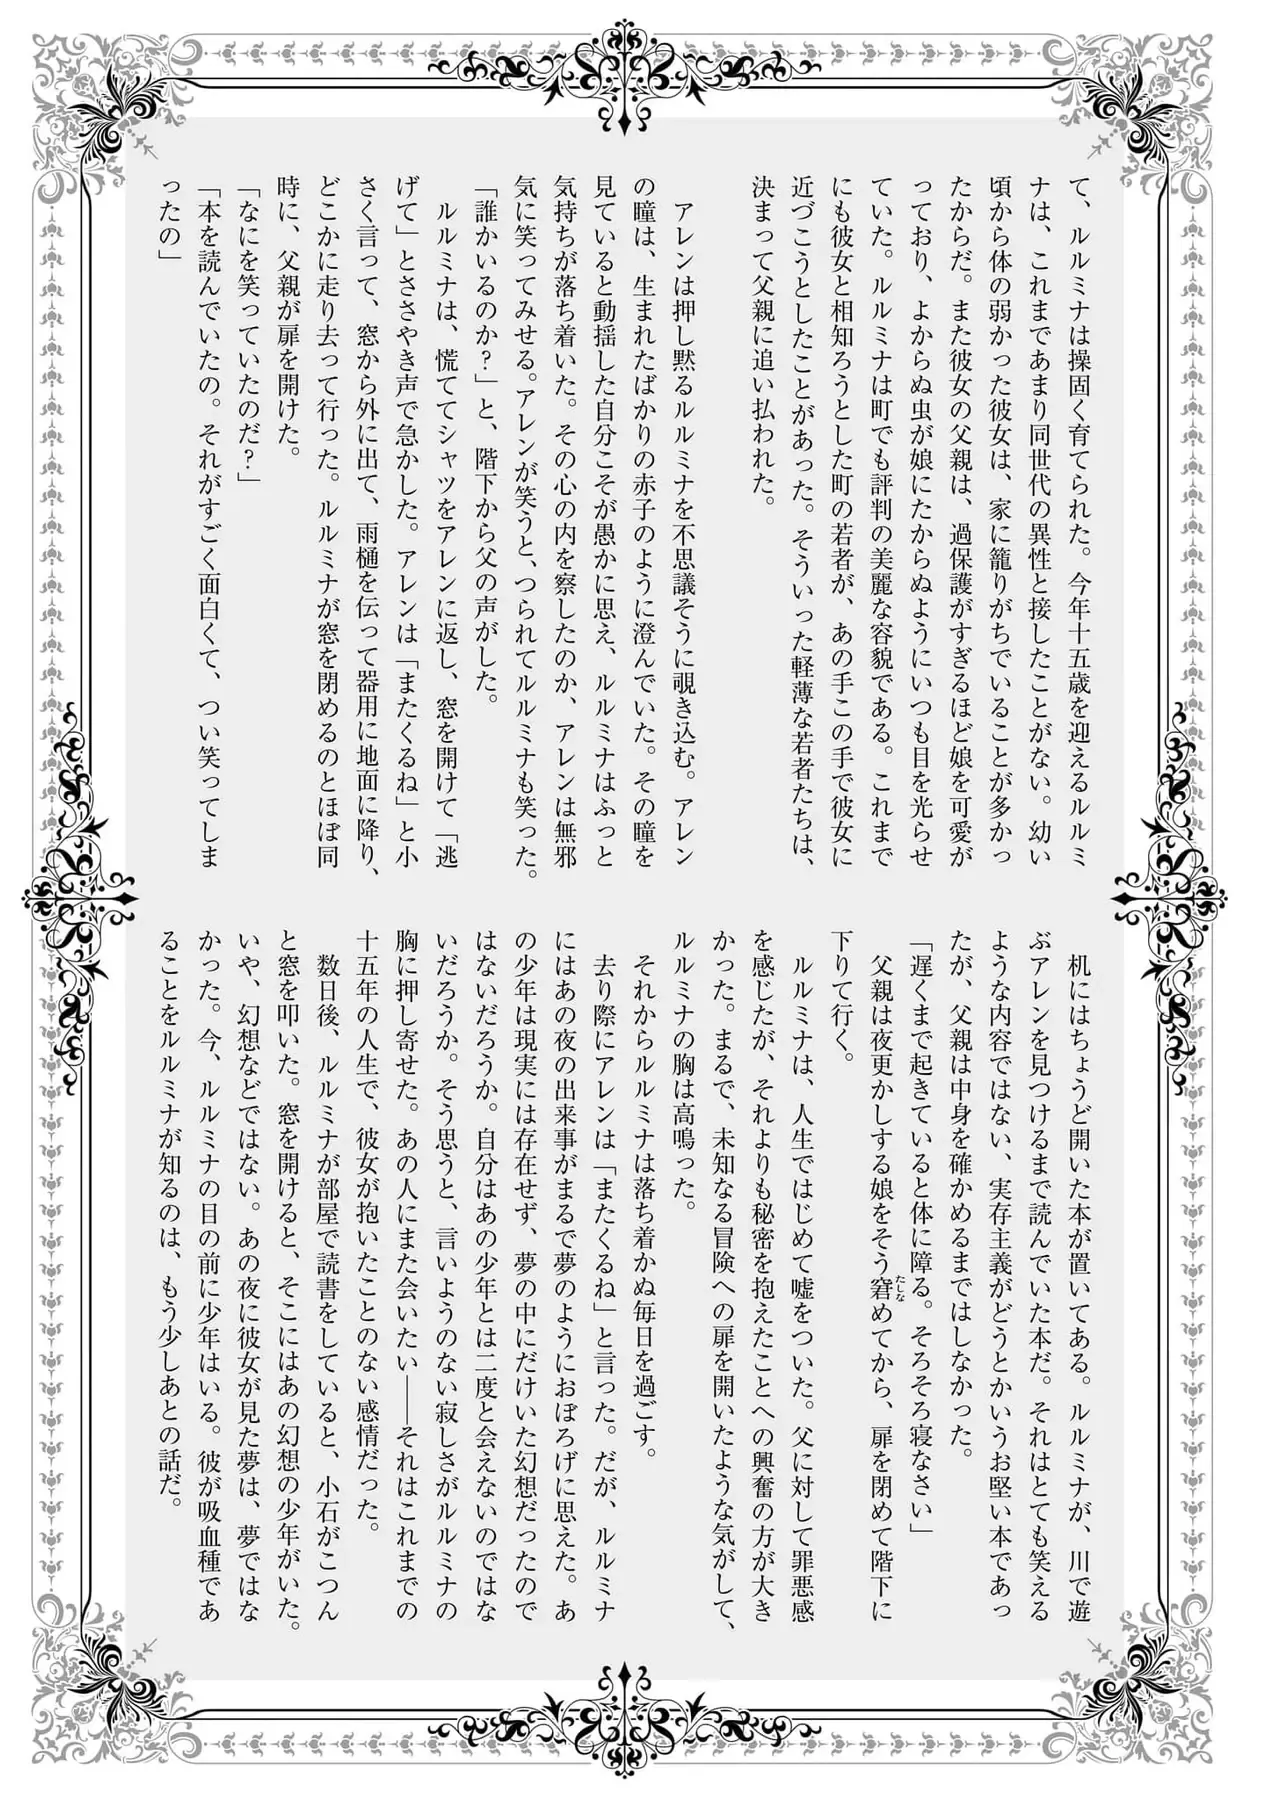 て、ルルミナは操固く育てられた。今年十五歳を迎えるルルミ
ナは、これまであまり同世代の異性と接したことがない。幼い
頃から体の弱かった彼女は、家に籠りがちでいることが多かっ
たからだ。また彼女の父親は、過保護がすぎるほど娘を可愛が
っており、よからぬ虫が娘にたからぬようにいつも目を光らせ
ていた。ルルミナは町でも評判の美麗な容貌である。これまで
にも彼女と相知ろうとした町の若者が、あの手この手で彼女に
近づこうとしたことがあった。そういった軽薄な若者たちは、
決まって父親に追い払われた。
アレンは押し黙るルルミナを不思議そうに覗き込む。アレン
の瞳は、生まれたばかりの赤子のように澄んでいた。その瞳を
見ていると動揺した自分こそが愚かに思え、ルルミナはふっと
気持ちが落ち着いた。その心の内を察したのか、アレンは無邪
気に笑ってみせる。アレンが笑うと、つられてルルミナも笑った。
「誰かいるのか?」と、階下から父の声がした。
ルルミナは、慌ててシャツをアレンに返し、窓を開けて「逃
げて」とささやき声で急かした。アレンは「またくるね」と小
さく言って、窓から外に出て、雨樋を伝って器用に地面に降り、
どこかに走り去って行った。ルルミナが窓を閉めるのとほぼ同
時に、父親が扉を開けた。
「なにを笑っていたのだ?」
「本を読んでいたの。それがすごく面白くて、つい笑ってしま
ったの」
机にはちょうど開いた本が置いてある。ルルミナが、川で遊
ぶアレンを見つけるまで読んでいた本だ。それはとても笑える
ような内容ではない、実存主義がどうとかいうお堅い本であっ
たが、父親は中身を確かめるまではしなかった。
「遅くまで起きていると体に障る。そろそろ寝なさい」
父親は夜更かしする娘をそう窘めてから、扉を閉めて階下に
下りて行く。
ルルミナは、人生ではじめて嘘をついた。父に対して罪悪感
を感じたが、それよりも秘密を抱えたことへの興奮の方が大き
かった。まるで、未知なる冒険への扉を開いたような気がして、
ルルミナの胸は高鳴った。
それからルルミナは落ち着かぬ毎日を過ごす。
去り際にアレンは「またくるね」と言った。だが、ルルミナ
にはあの夜の出来事がまるで夢のようにおぼろげに思えた。あ
の少年は現実には存在せず、夢の中にだけいた幻想だったので
はないだろうか。自分はあの少年とは二度と会えないのではな
いだろうか。そう思うと、言いようのない寂しさがルルミナの
胸に押し寄せた。あの人にまた会いたい――それはこれまでの
十五年の人生で、彼女が抱いたことのない感情だった。
数日後、ルルミナが部屋で読書をしていると、小石がこつん
と窓を叩いた。窓を開けると、そこにはあの幻想の少年がいた。
いや、幻想などではない。あの夜に彼女が見た夢は、夢ではな
かった。今、ルルミナの目の前に少年はいる。彼が吸血種であ
ることをルルミナが知るのは、もう少しあとの話だ。
たしな